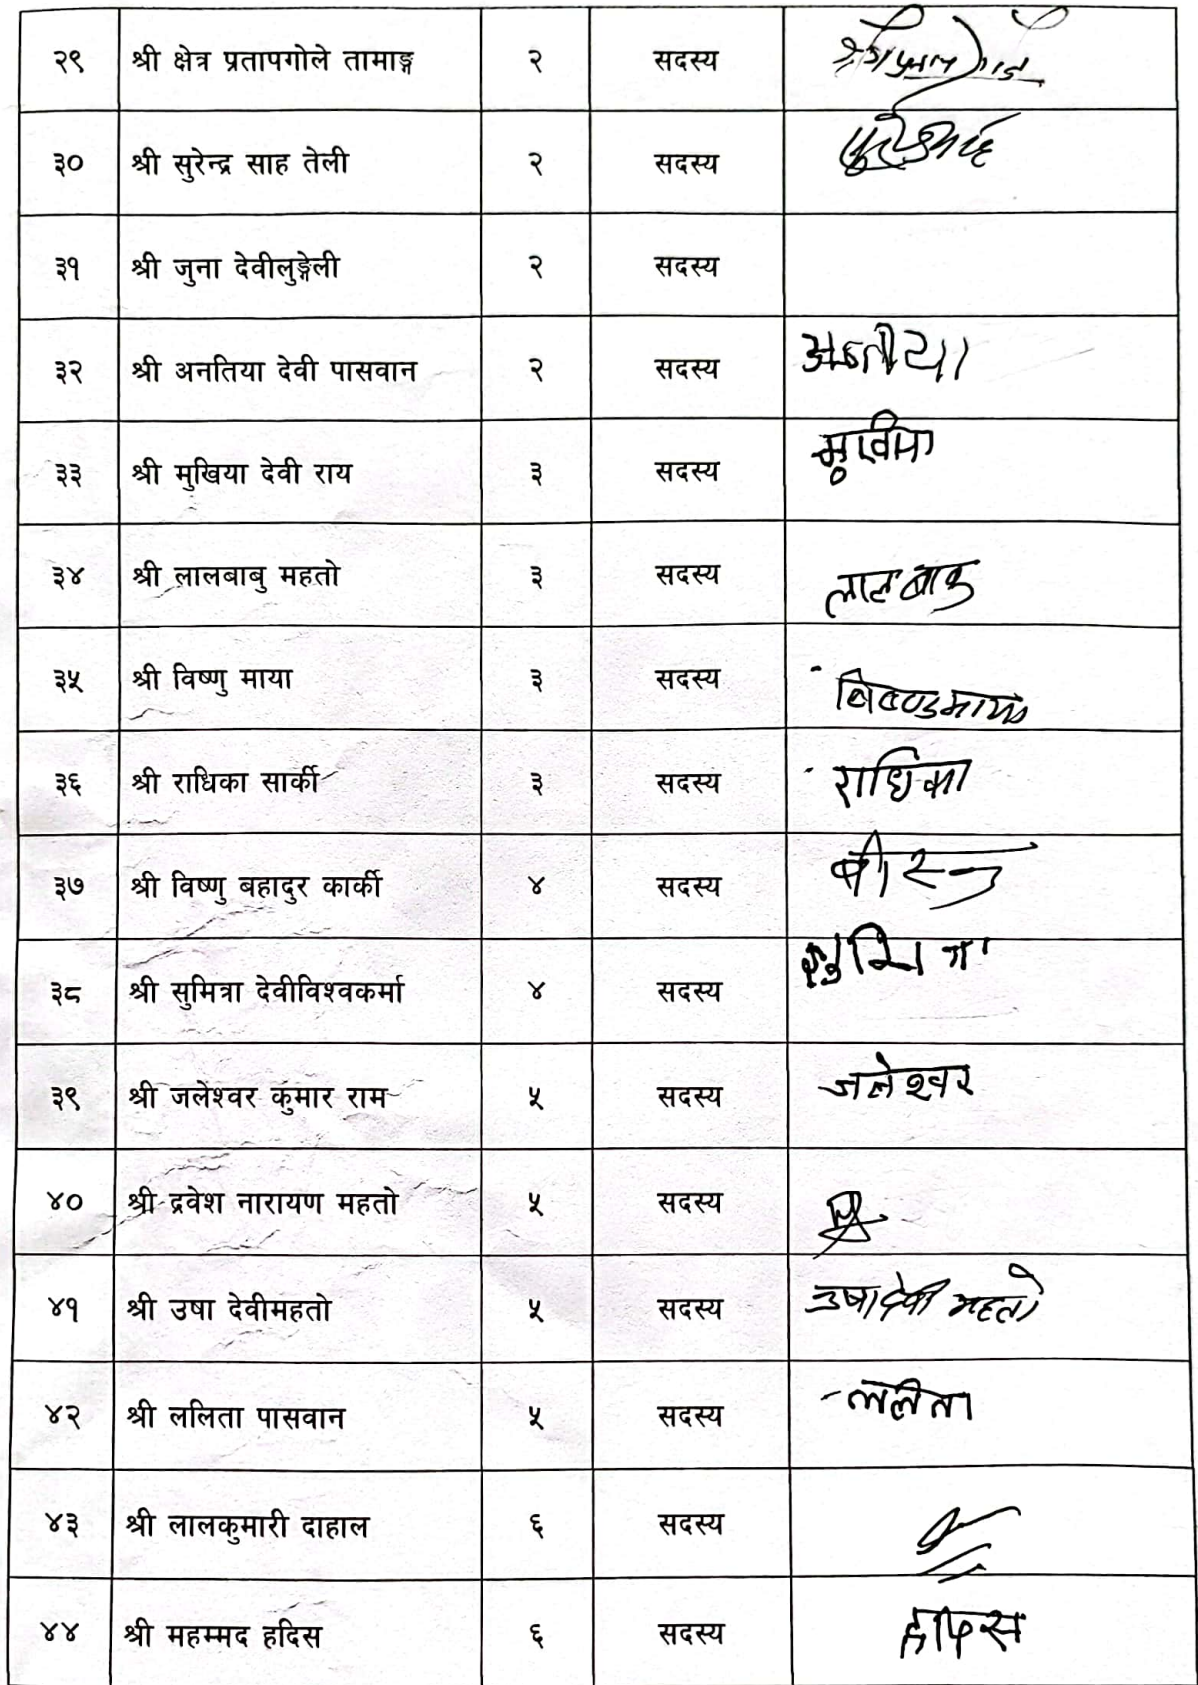 २९ श्री क्षेत्र प्रतापगोले तामाङ्ग २ सदस्य
३० श्री सुरेन्द्र साह तेली २ सदस्य
३१ श्री जुना देवीलुङ्गेली २ सदस्य
३२ श्री अनतिया देवी पासवान २ सदस्य
३३ श्री मुखिया देवी राय ३ सदस्य मुखिया
३४ श्री लालबाबु महतो ३ सदस्य लालबाबु
३५ श्री विष्णु माया ३ सदस्य
३६ श्री राधिका सार्की ३ सदस्य राधिका
३७ श्री विष्णु बहादुर कार्की ४ सदस्य
३८ श्री सुमित्रा देवीविश्वकर्मा ४ सदस्य
३९ श्री जलेश्वर कुमार राम ५ सदस्य जलेश्वर
४० श्री द्रवेश नारायण महतो ५ सदस्य
४१ श्री उषा देवीमहतो ५ सदस्य उषा देवी महतो
४२ श्री ललिता पासवान ५ सदस्य ललीता
४३ श्री लालकुमारी दाहाल ६ सदस्य
४४ श्री महम्मद हदिस ६ सदस्य